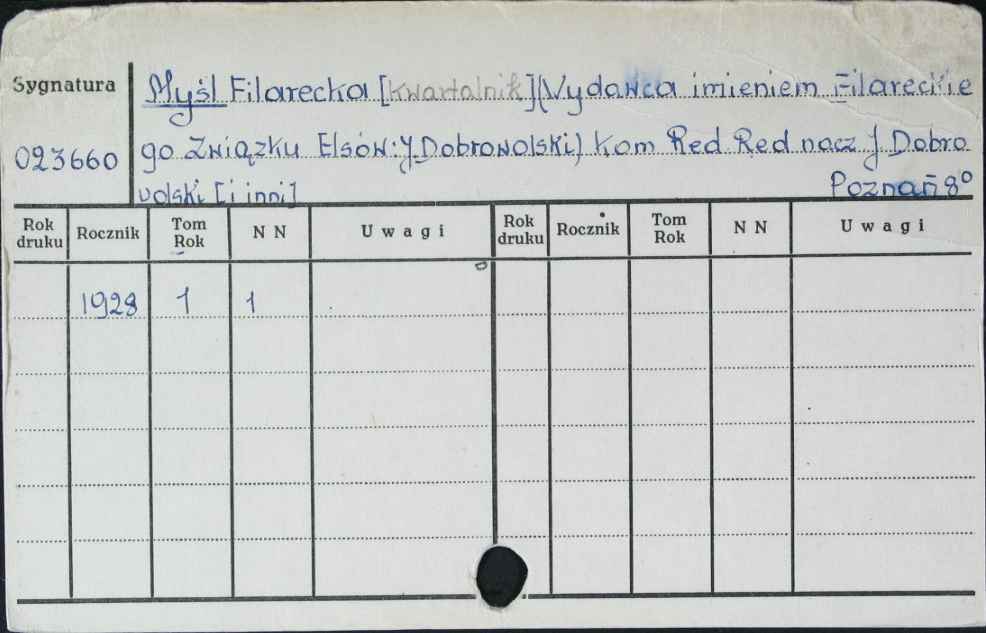 Sygnatura
Myśl Filarecka [Kwartalnik] (Wydawca imieniem Filareckie
023660
go Związku Elsów: J. Dobrowolski) Kom Red Red nacz J Dobro
wolski [i inni]
Poznań 8°
Rok druku Rocznik Tom Rok N N Uwagi Rok druku Rocznik Tom Rok N N Uwagi
1928 1 1